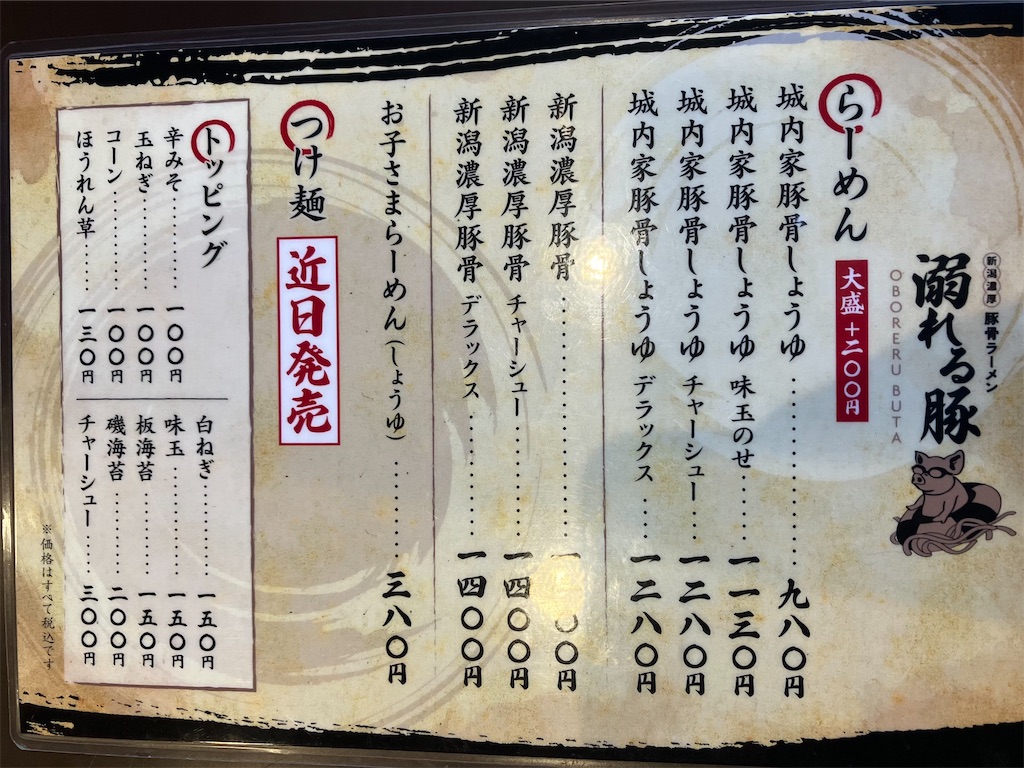 新潟濃厚 豚骨ラーメン
溺れる豚
OBORERU BUTA
らーめん 大盛+二〇〇円
城内家豚骨しょうゆ…………九八〇円
城内家豚骨しょうゆ 味玉のせ……一一三〇円
城内家豚骨しょうゆ チャーシュー……一二八〇円
城内家豚骨しょうゆ デラックス……一二八〇円
新潟濃厚豚骨…………
新潟濃厚豚骨 チャーシュー…………一四〇〇円
新潟濃厚豚骨 デラックス…………一四〇〇円
お子さまらーめん(しょうゆ)…………三八〇円
つけ麺 近日発売
トッピング
辛みそ…………一〇〇円
玉ねぎ…………一〇〇円
コーン…………一〇〇円
ほうれん草……一三〇円
白ねぎ…………一五〇円
味玉…………一五〇円
板海苔…………一五〇円
磯海苔…………二〇〇円
チャーシュー……三〇〇円
※価格はすべて税込です